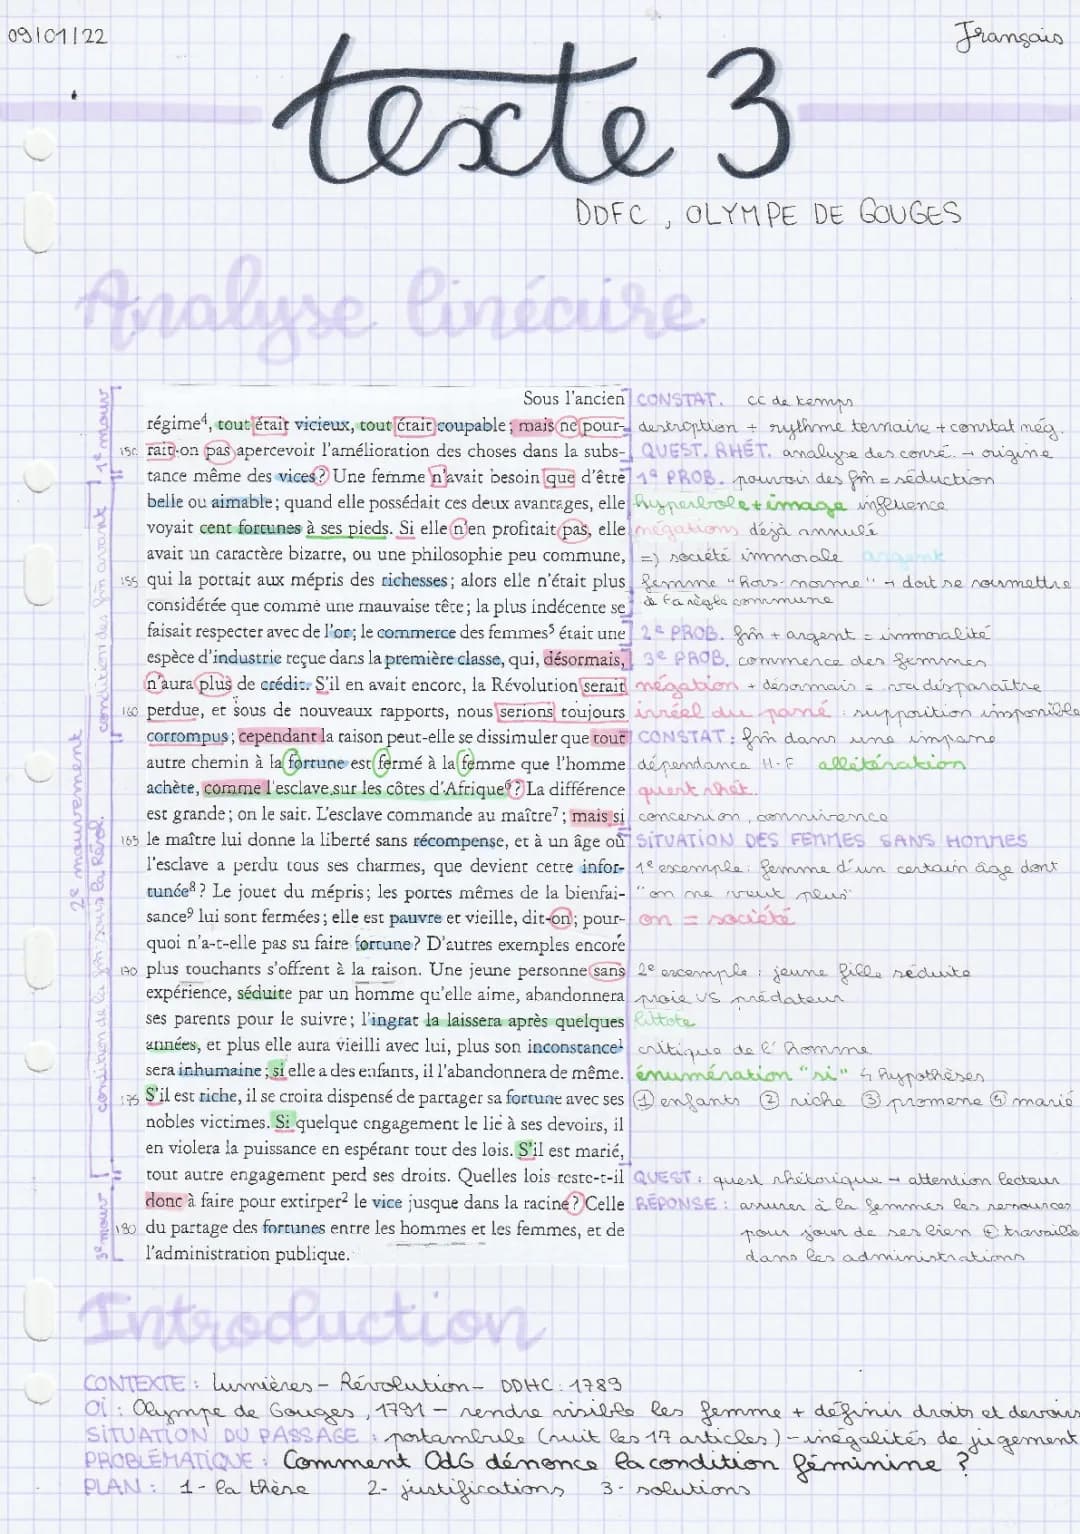 09/01/22
Français
texte 3
DDFC, OLYMPE DE GOUGES
Analyse linéaire
Sous l'ancien
régime⁴, tout était vicieux, tout était coupable; mais ne pour-
150 rait-on pas apercevoir l'amélioration des choses dans la subs-
tance même des vices? Une femme n'avait besoin que d'être
belle ou aimable; quand elle possédait ces deux avantages, elle
voyait cent fortunes à ses pieds. Si elle n'en profitait pas, elle
avait un caractère bizarre, ou une philosophie peu commune,
155 qui la portait aux mépris des richesses; alors elle n'était plus
considérée que comme une mauvaise tête; la plus indécente se
faisait respecter avec de l'or; le commerce des femmes⁵ était une
espèce d'industrie reçue dans la première classe, qui, désormais,
n'aura plus de crédit. S'il en avait encore, la Révolution serait
160 perdue, et sous de nouveaux rapports, nous serions toujours
corrompus; cependant la raison peut-elle se dissimuler que tout
autre chemin à la fortune est fermé à la femme que l'homme
achète, comme l'esclave sur les côtes d'Afrique⁶? La différence
est grande; on le sait. L'esclave commande au maître⁷; mais si
165 le maître lui donne la liberté sans récompense, et à un âge où
l'esclave a perdu tous ses charmes, que devient cette infor-
tunée⁸? Le jouet du mépris; les portes mêmes de la bienfai-
sance⁹ lui sont fermées; elle est pauvre et vieille, dit-on; pour-
quoi n'a-t-elle pas su faire fortune? D'autres exemples encore
170 plus touchants s'offrent à la raison. Une jeune personne sans
expérience, séduite par un homme qu'elle aime, abandonnera
ses parents pour le suivre; l'ingrat la laissera après quelques
années, et plus elle aura vieilli avec lui, plus son inconstance¹
sera inhumaine; si elle a des enfants, il l'abandonnera de même.
175 S'il est riche, il se croira dispensé de partager sa fortune avec ses
nobles victimes. Si quelque engagement le lie à ses devoirs, il
en violera la puissance en espérant tout des lois. S'il est marié,
tout autre engagement perd ses droits. Quelles lois reste-t-il
donc à faire pour extirper² le vice jusque dans la racine? Celle
180 du partage des fortunes entre les hommes et les femmes, et de
l'administration publique.
CONSTAT. CC de temps
description + rythme ternaire + constat nég.
QUEST. RHÉT. analyse des consé. → origine
1e PROB. pouvoir des fm = séduction
hyperbole + image influence
négations déjà annulé
=) société immorale argent
femme "hors-norme" → doit se soumettre
à la règle commune
2e PROB. fm + argent = immoralité
3e PROB. commerce des femmes
négation + désormais = va disparaître
irréel du passé : supposition impossible
CONSTAT : fm dans une impasse
dépendance H-F allitération
quest rhét.
concession, connivence
SITUATION DES FEMMES SANS HOMMES
1e exemple : femme d'un certain âge dont
"on ne veut plus"
on = société
2e exemple : jeune fille séduite
proie VS prédateur
littote
critique de l'homme
énumération "si" 4 hypothèses
① enfants ② riche ③ promesse ④ marié
QUEST : quest rhétorique → attention lecteur
RÉPONSE : assurer à la femmes les ressources
pour jouir de ses bien ⊕ travaille
dans les administrations
1e mouv
condition des fm avant
2e mouvement
condition de la fm sous la Révol.
3e mouv
Introduction
CONTEXTE : Lumières - Révolution - DDHC : 1789
OI : Olympe de Gouges, 1791 - rendre visible les femme + définir droits et devoirs
SITUATION DU PASSAGE : postambule (suit les 17 articles) - inégalités de jugement
PROBLÉMATIQUE : Comment OdG dénonce la condition féminine ?
PLAN : 1- la thèse 2- justifications 3- solutions